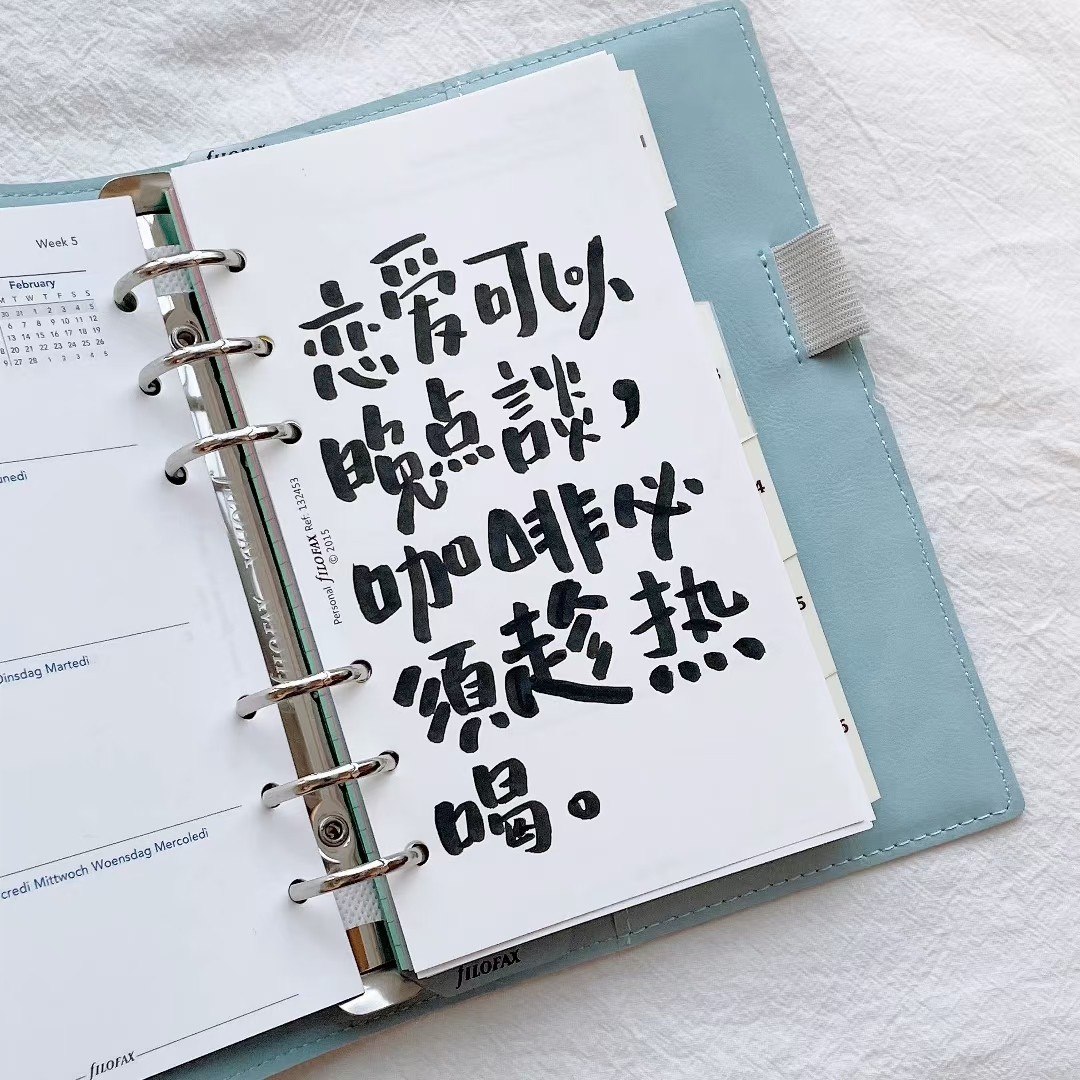 Week 5
February
M T W T F S S
30 31 1 2 3 4 5
6 7 8 9 10 11 12
13 14 15 16 17 18 19
8 20 21 22 23 24 25 26
9 27 28 1 2 3 4 5
Dinsdag Martedì
Mittwoch Woensdag Mercoledì
fILOFAX
fILOFAX
恋爱可以
晚点談，
咖啡必
須趁热
喝。
Personal fILOFAX Ref: 132453
© 2015
fILOFAX
4
5
6